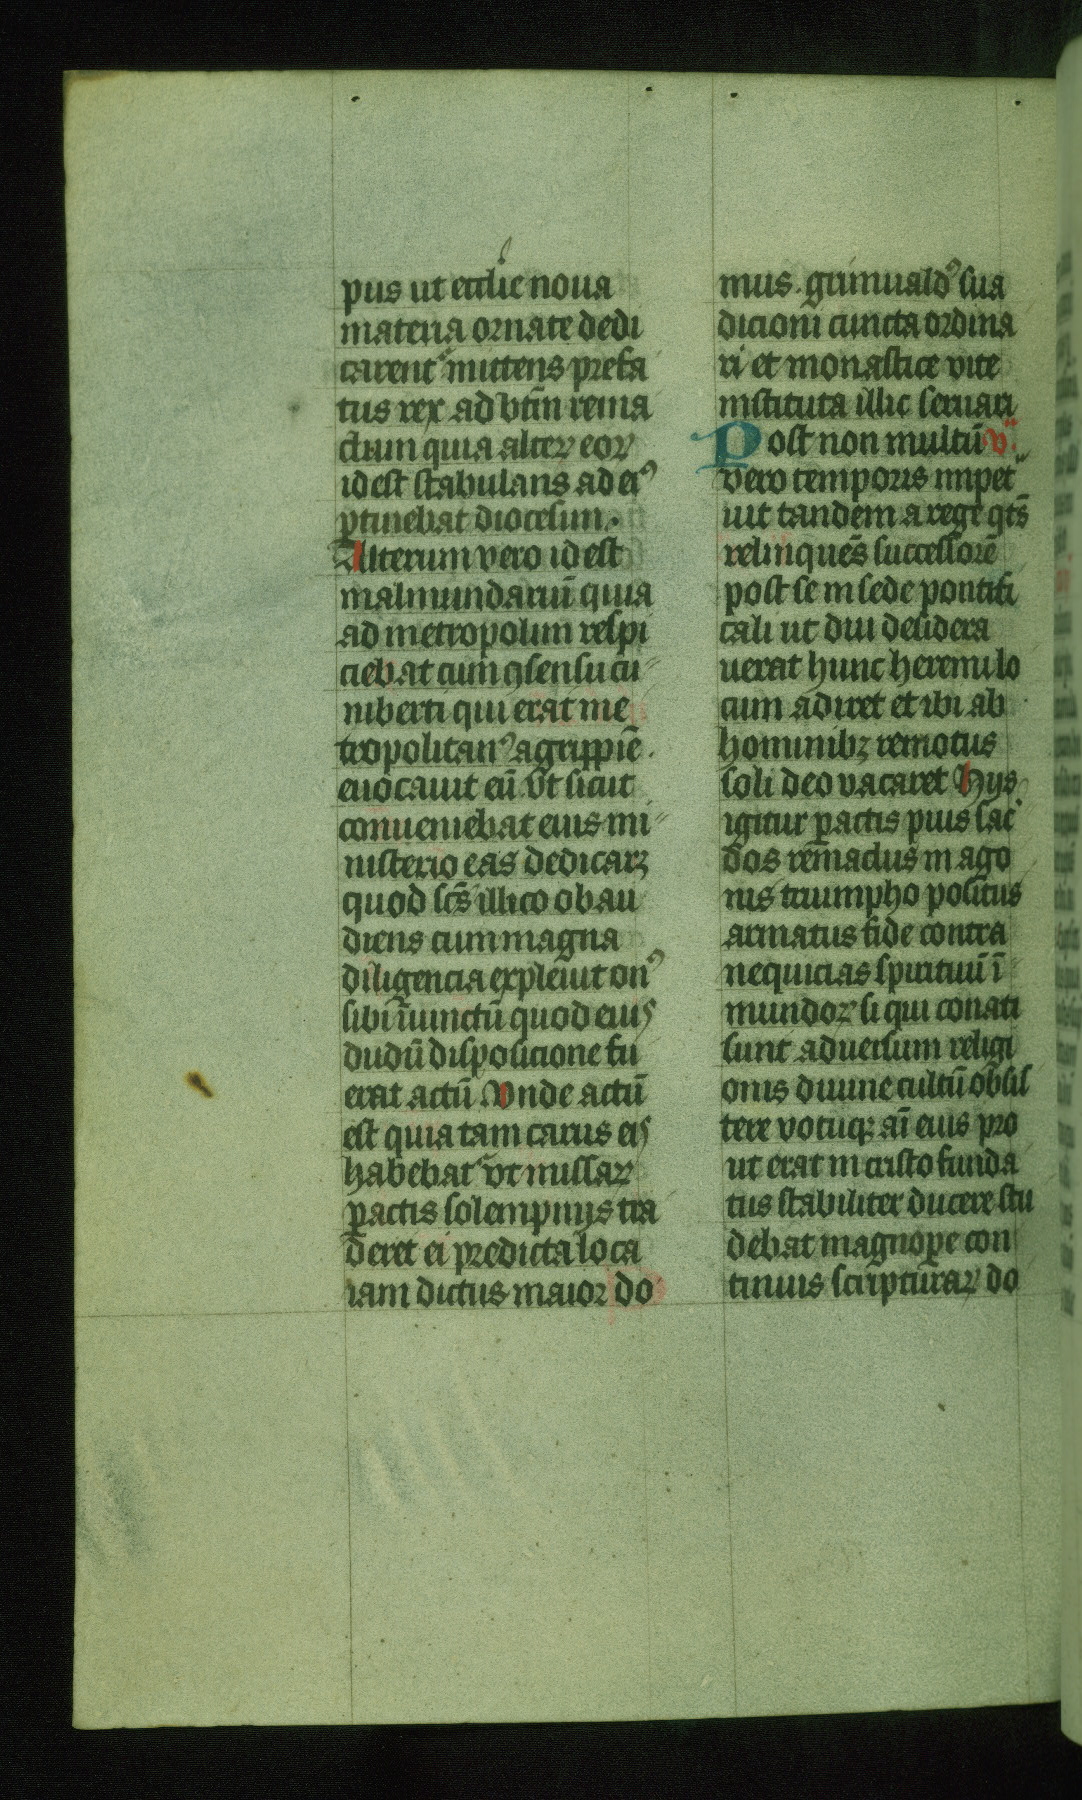 pus ut eccl̄ie noua
materia ornate dedi
carent᷒ mittens prefa
tus rex ad btm̄ rema
clum quia alteꝝ eoꝝ
id est stabulans ad eiꝰ
ꝑtinebat diocesim.
Alterum vero id est
malmundariū quia
ad metropolim respi
ciebat cum ꝯsensu cu
niberti qui erat me
tropolitanꝰ agrippiē.
euocauit eū. vt sicut
conueniebat eius mi
nisterio eas dedicarꝫ
quod scs̄ illico obau
diens cum magna
diligencia expleuit onꝰ
sibi īiunctū quod eius
dudū disposicione fu
erat actū. Unde actū
est quia tam carus eis
habebat᷒ vt missaꝝ
ꝑactis solempnijs tra
deret ei predicta loca
iam dictus maior do
mus. grimualdꝰ sua
dicioni cuncta ordina
ri et monastice vite
instituta illic seruari
Post non multū v.
vero temporis impet
uit tandem a rege qts̄
relinquēs successorē
post se in sede pontifi
cali ut diu desidera
uerat hunc heremi lo
cum adiret et ibi ab
hominibꝫ remotus
soli deo vacaret Hijs
igitur ꝑactis pius sac̄
dos rēmaclus in ago
nis triumpho positus
armatus fide contra
nequicias spirituū ī
mundoꝝ si qui conati
sunt aduersum religi
onis diuine cultū obsis
tere votuqꝫ aī eius pro
ut erat in cristo funda
tus stabiliter ducere stu
debat magnoꝑe con
tinuis scripturaꝝ do